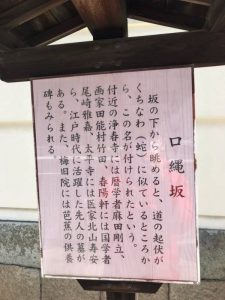 口縄坂
坂の下から眺めると、道の起伏が
くちなわ（蛇）に似ているところか
ら、この名が付けられたという。
付近の浄春寺には暦学者麻田剛立、
画家田能村竹田、春陽軒には国学者
尾崎雅嘉、太平寺には医家北山寿安
ら、江戸時代に活躍した先人の墓が
ある。また、梅旧院には芭蕉の供養
碑もみられる。